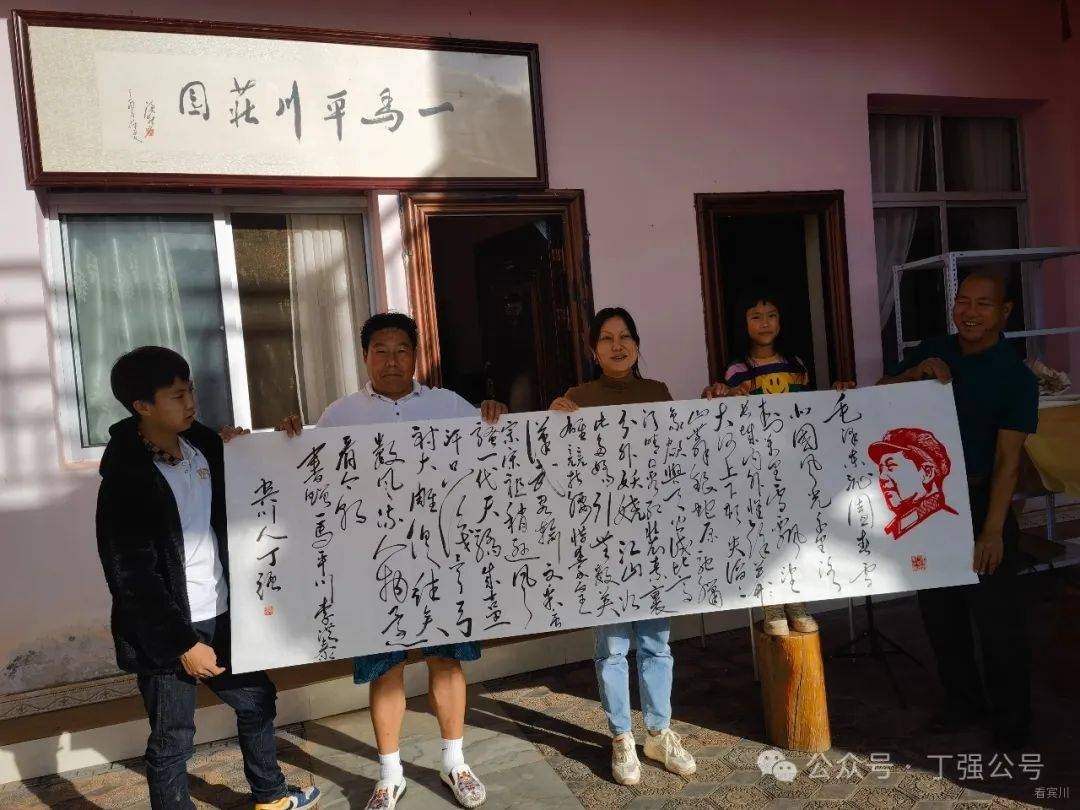 一馬平川莊園
毛泽东沁園春雪
北國风光千里冰
封万里雪飘望
长城内外惟余莽莽
大河上下顿失滔滔
山舞银蛇原驰腊
象欲与天公试比高
须晴日看红装素裹
分外妖娆江山如
此多娇引无数英
雄競折腰惜秦皇
漢武略输文采唐
宗宋祖稍逊风
骚一代天骄成吉思
汗只识弯弓
射大雕俱往矣
数风流人物还
看今朝
書贈一馬平川李
宾川人丁强
公众号·丁强公号
看宾川